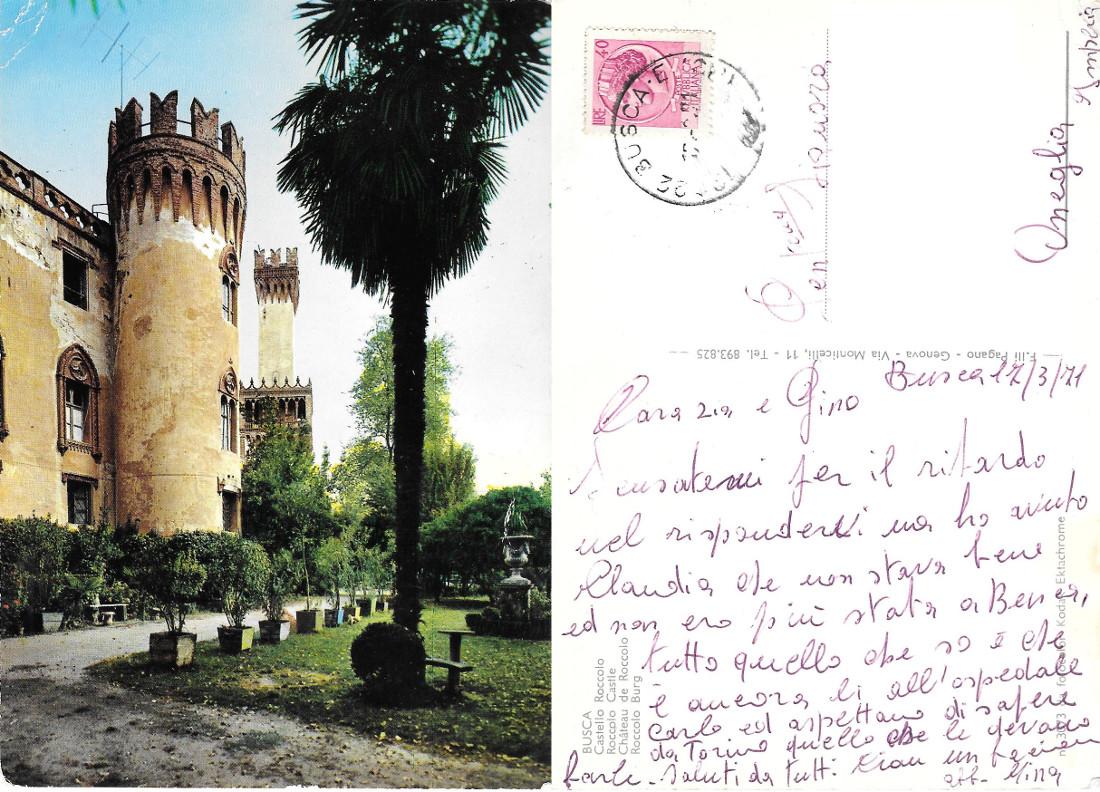 LIRE 40
REPVBBLICA
ITALIANA
BUSCA
Oneglia
Imperia
F.lli Pagano - Genova - Via Monticelli, 11 - Tel. 893.825
BUSCA
Castello Roccolo
Roccolo Castle
Château de Roccolo
Roccolo Burg
Kodak Ektachrome
Busca 17/3/71
Cara zia e Gino
Scusatemi per il ritardo
nel rispondervi ma ho avuto
Claudia che non stava bene
ed non ero più stata a
tutto quello che so è che
è ancora lì all'ospedale
Carlo ed aspettano di sapere
da Torino quello che le devono
farle - Saluti da tutti Ciao un bacione
aff. Mina